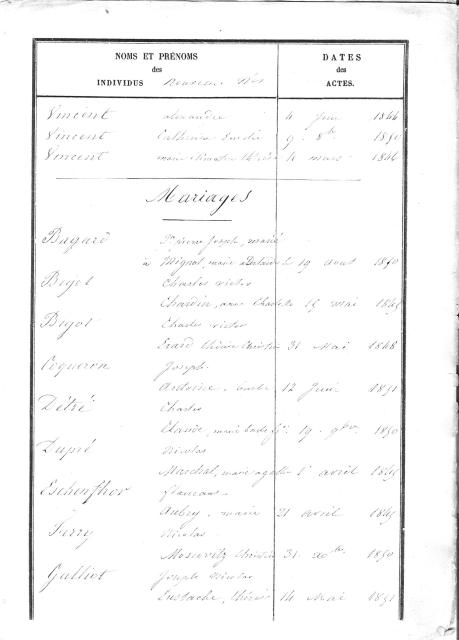 NOMS ET PRÉNOMS DATES
des des
INDIVIDUS Nouveaux Nés ACTES.
Vincent alexandre 4 Juin 1846
Vincent Catherine 9 8bre 1850
Vincent marie 4 mars 1846
Mariages
Bagard Jn pierre Joseph, marié
à Mignot, marie adelaide le 19 aout 1850
Bigot Charles victor
Chardin, anne Charlotte 15 mai 1845
Bigot Charles victor
31 Mai 1848
Coqueron Joseph
Antoine, barbe 12 Juin 1851
Détré Charles
Claude, marie 19 9bre 1850
Dupré Nicolas
Marchal, marie agathe 1er avril 1845
Eschenfhor francois
Aubry, marie 21 avril 1845
Ferry Nicolas
Christine 31 Xbre 1850
Galliot Joseph Nicolas
Eustache, thérèse 14 Mai 1851